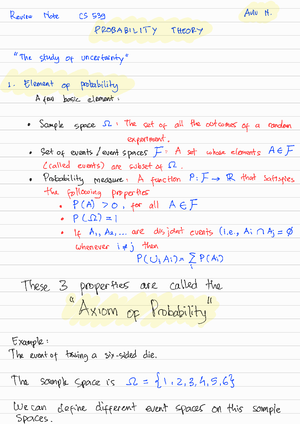 Review Note CS 539
Avu H.
PROBABILITY THEORY
"The study of uncertainty"
1. Element of probability
A few basic element:
• Sample space Ω: The set of all the outcomes of a random
experiment.
• Set of events / event spaces F: A set whose elements A ∈ F
(called events) are subset of Ω.
• Probability measure: A function P: F → R that satisfies
the following properties
• P(A) > 0, for all A ∈ F
• P(Ω) = 1
• If A₁, A₂, ... are disjoint events (i.e., Ai ∩ Aj = ∅
whenever i ≠ j then
P(∪i Ai) = Σi P(Ai)
These 3 properties are called the
"Axiom of Probability"
Example:
The event of tossing a six-sided die.
The sample space is Ω = {1, 2, 3, 4, 5, 6}
We can define different event spaces on this sample
spaces.